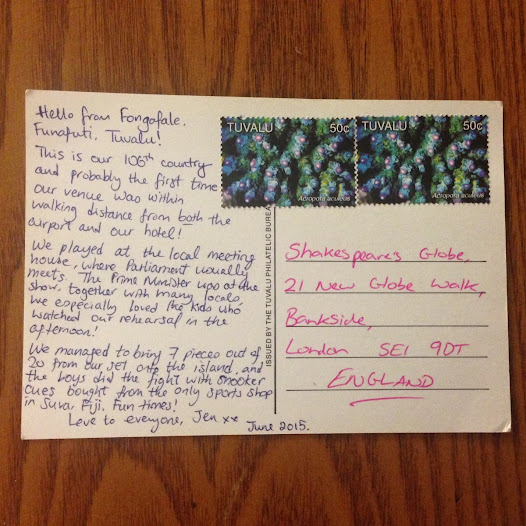 Hello from Fongafale,
Funafuti, Tuvalu!
This is our 106th country
and probably the first time
our venue was within
walking distance from both the
airport and our hotel!
We played at the local meeting
house, where Parliament usually
meets. The Prime Minister was at the
show, together with many locals,
we especially loved the kids who
watched our rehearsal in the
afternoon!
We managed to bring 7 pieces out of
20 from our set onto the island, and
the boys did the fight with snooker
cues bought from the only sports shop
in Suva, Fiji. Fun times!
Love to everyone, Jen xx
June 2015.
TUVALU 50c
Acropora aculeus
TUVALU 50c
Acropora aculeus
ISSUED BY THE TUVALU PHILATELIC BUREAU
Shakespeare's Globe,
21 New Globe Walk,
Bankside,
London SE1 9DT
ENGLAND